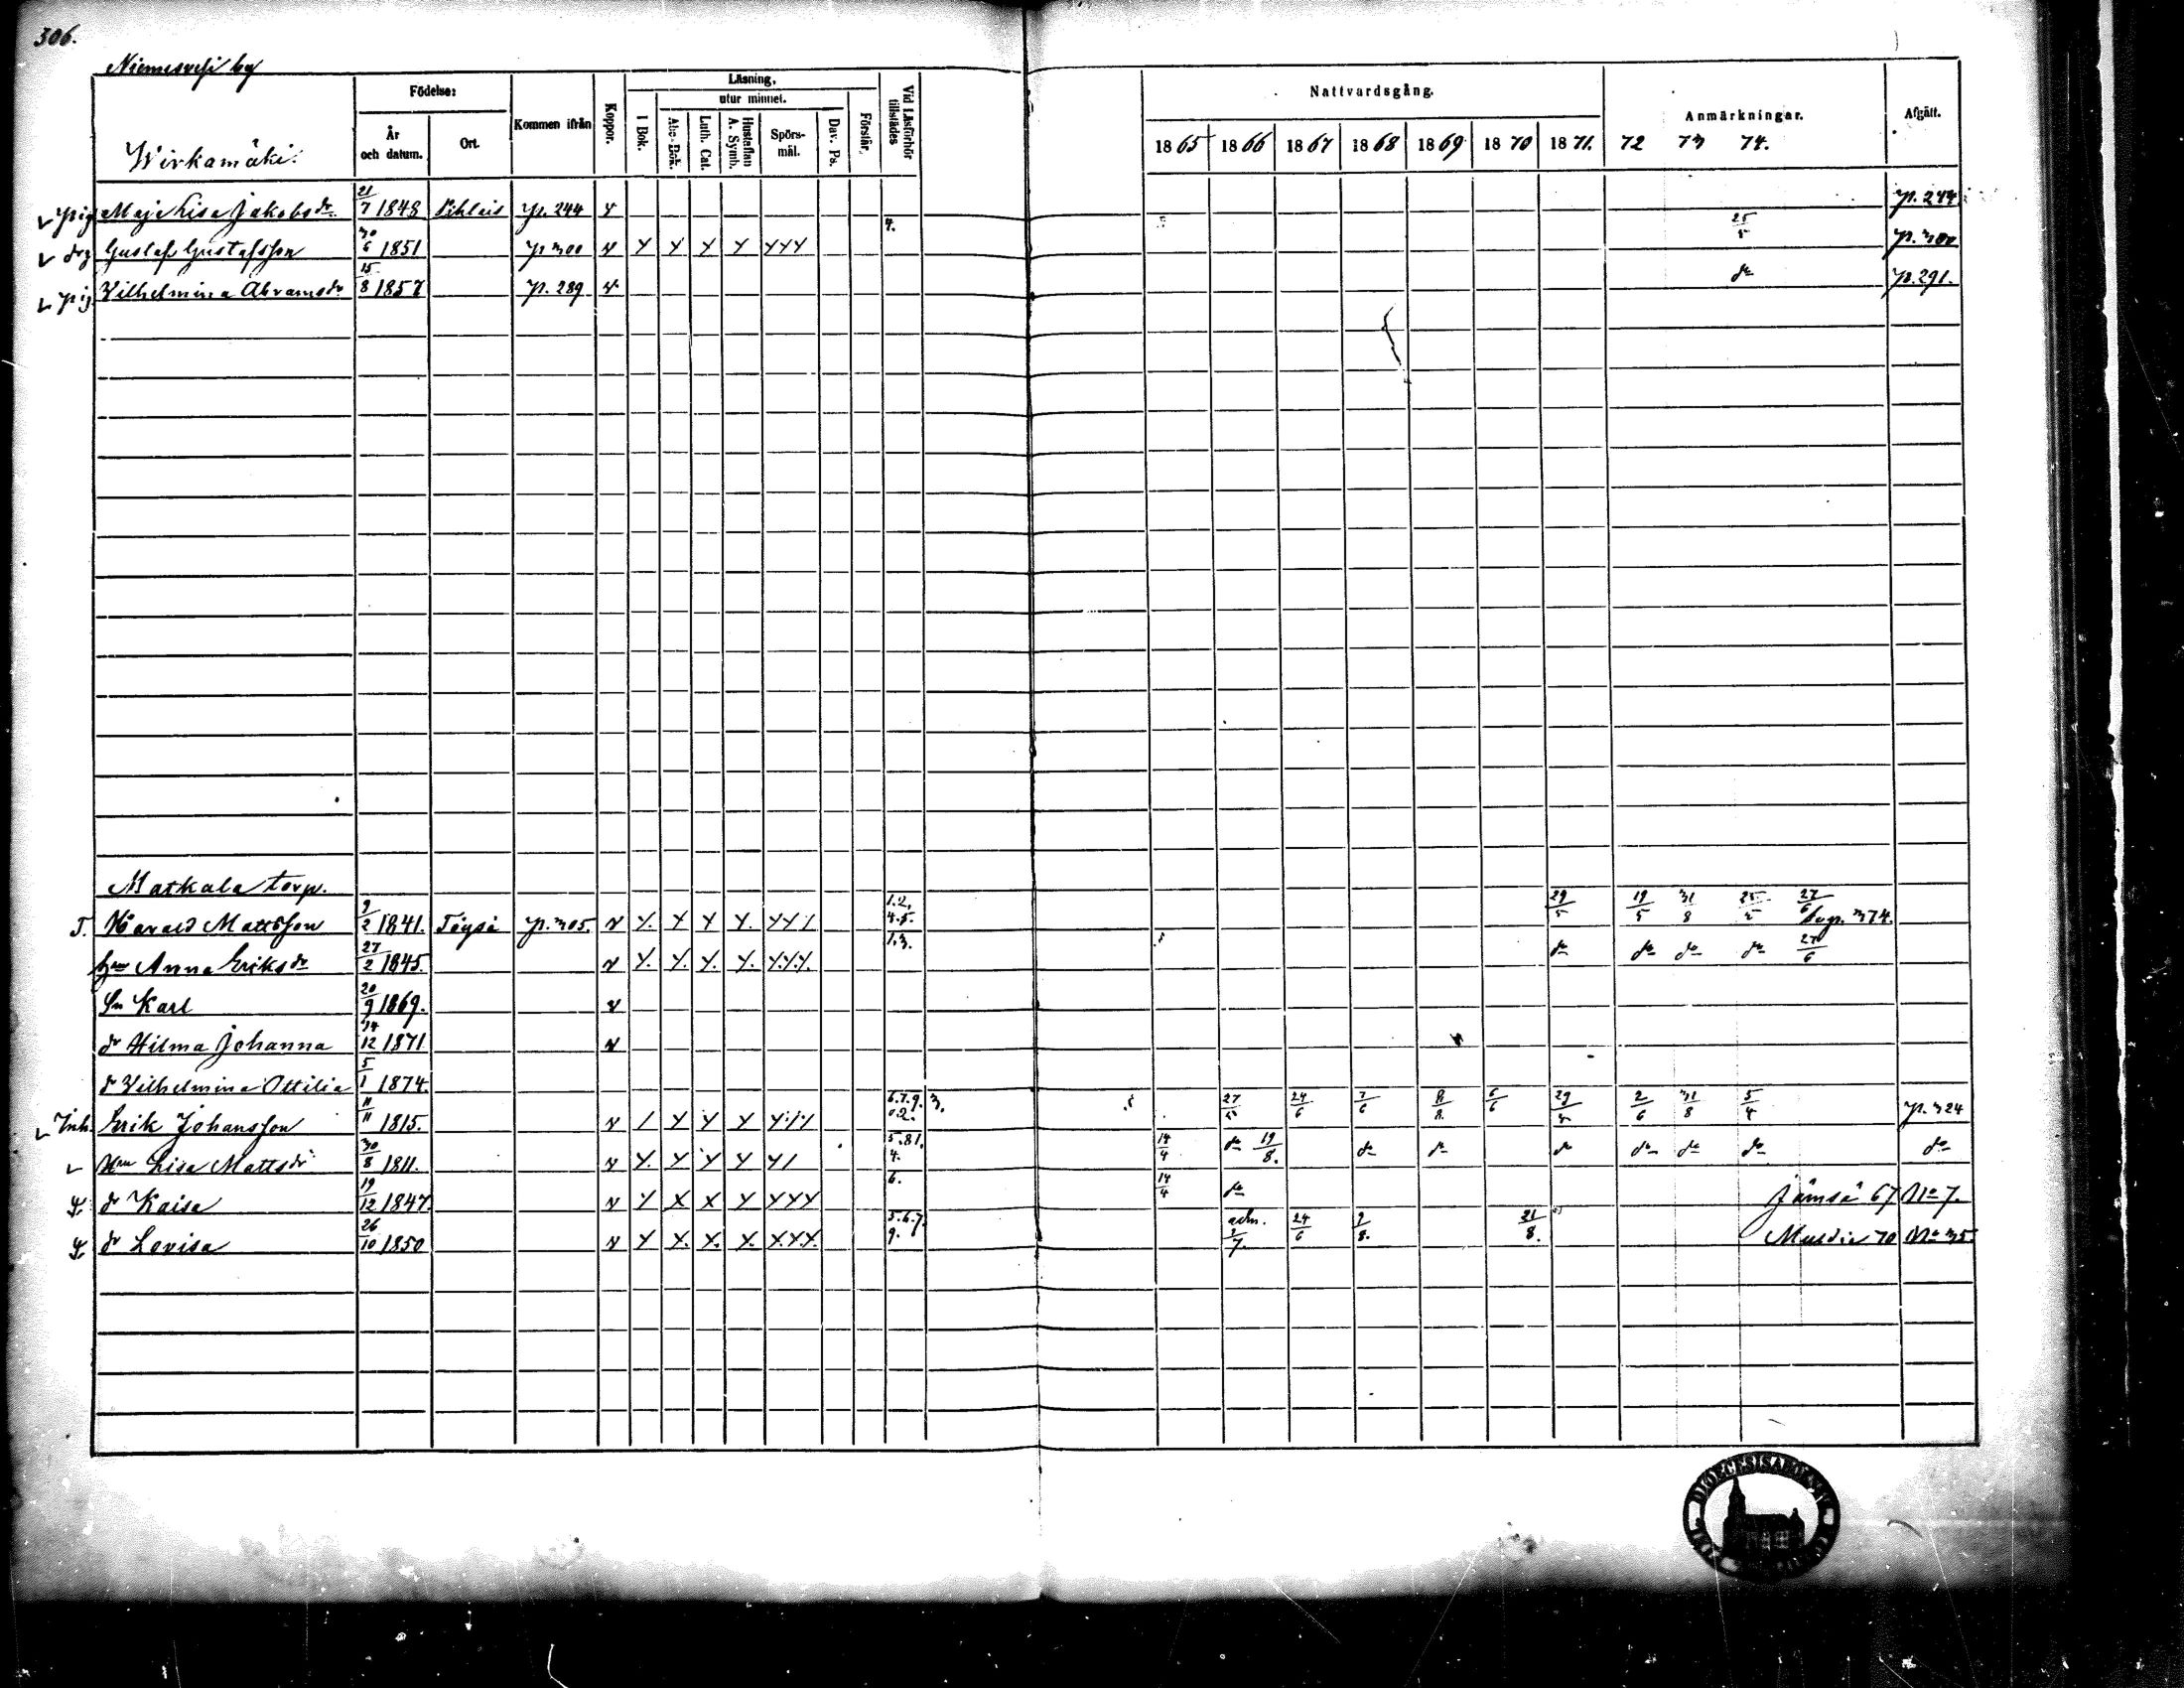 306.
Niemisvesi by
Wirkamäki.
Födelse: År och datum. Ort. Kommen ifrån Koppor. Läsning, I Bok. utur minnet. Abc-Bok. Luth. Cat. Hustaflan A. Symb. Spörs-mål. Dav. Ps. Förstår. Vid Läsförhör tillstädes
Nattvardsgång. 1865 1866 1867 1868 1869 1870 1871. Anmärkningar. 72 73 74. Afgått.
pig Maja Lisa Jakobsdr 21/7 1848 p. 244 v p. 244
drg Gustaf Gustafsson 30/6 1851 p 300 v Y Y Y Y YYY 4. 25/5 p. 300
pig Vilhelmina Abramsdr 15/8 1857 p. 289 v do p. 291.
Matkala torp.
T. Harald Mattsson 9/2 1841. Töysä p. 305. v Y. Y Y Y. YYY 1.2. 4.5. 29/5 19/5 31/8 25/5 27/6 p. 374.
Hru Anna Eriksdr 27/2 1845. v Y. Y. Y. Y. Y.Y.Y. 1.3. do do do do 27/6
Sn Karl 20/9 1869. v
dr Hilma Johanna 14/12 1871 v
dr Vilhelmina Ottilia 5/1 1874.
Inh. Erik Johansson 11/11 1815. v / Y Y Y 6.7.9. 0.2. 3. 27/5 24/6 7/6 8/8 6/6 29/5 2/6 31/8 5/4 p. 324
Hru Lisa Mattsdr 30/8 1811. v Y. Y Y Y Y/ 5.81. 4. 14/4 do 19/8. do do do do do do do
dr Kaisa 19/12 1847. v Y X X Y YYY 6. 14/4 do Jämsä 67 No 7.
dr Lovisa 26/10 1850 v Y X. X. X. X.X.X. 5.6.7. 9. adm. 24/6 21/8. 70 No 35